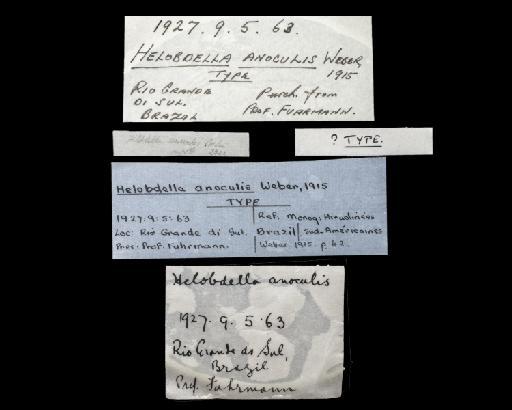 1927. 9. 5. 63.
HELOBDELLA ANOCULIS WEBER,
TYPE 1915
RIO GRANDE Purch. from
DI SUL. PROF. FUHRMANN.
BRAZIL
? TYPE.
Helobdella anoculis Weber, 1915
TYPE
1927:9:5:63 Ref. Monog: Hirudinées
Loc: Rio Grande di Sul. Brazil Sud-Américaines
Pres: Prof. Fuhrmann. Weber. 1915. p. 62.
Helobdella anoculis
1927. 9. 5. 63
Rio Grande do Sul,
Brazil
Prof. Fuhrmann